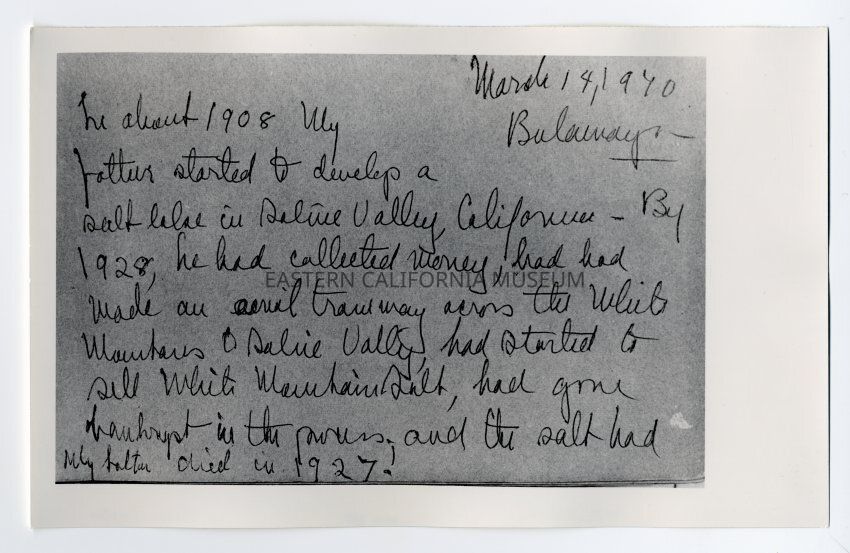 March 14, 1940
Bulawayo
In about 1908 My
father started to develop a
salt lake in Saline Valley, California - By
1928, he had collected money, had had
EASTERN CALIFORNIA MUSEUM
made an aerial tramway across the White
Mountains to Saline Valley, had started to
sell White Mountain Salt, had gone
bankrupt in the process; and the salt had
My father died in 1927.